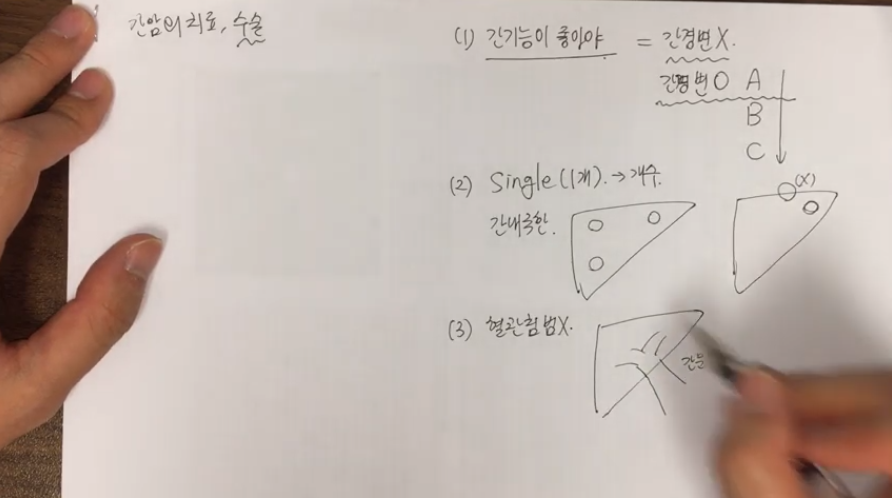 간암의 치료, 수술
(1) 간기능이 좋아야 = 간경변X.
간경변 O A
B
C
(2) Single (1개). → 개수.
간내국한.
(X)
(3) 혈관침범X.
간문